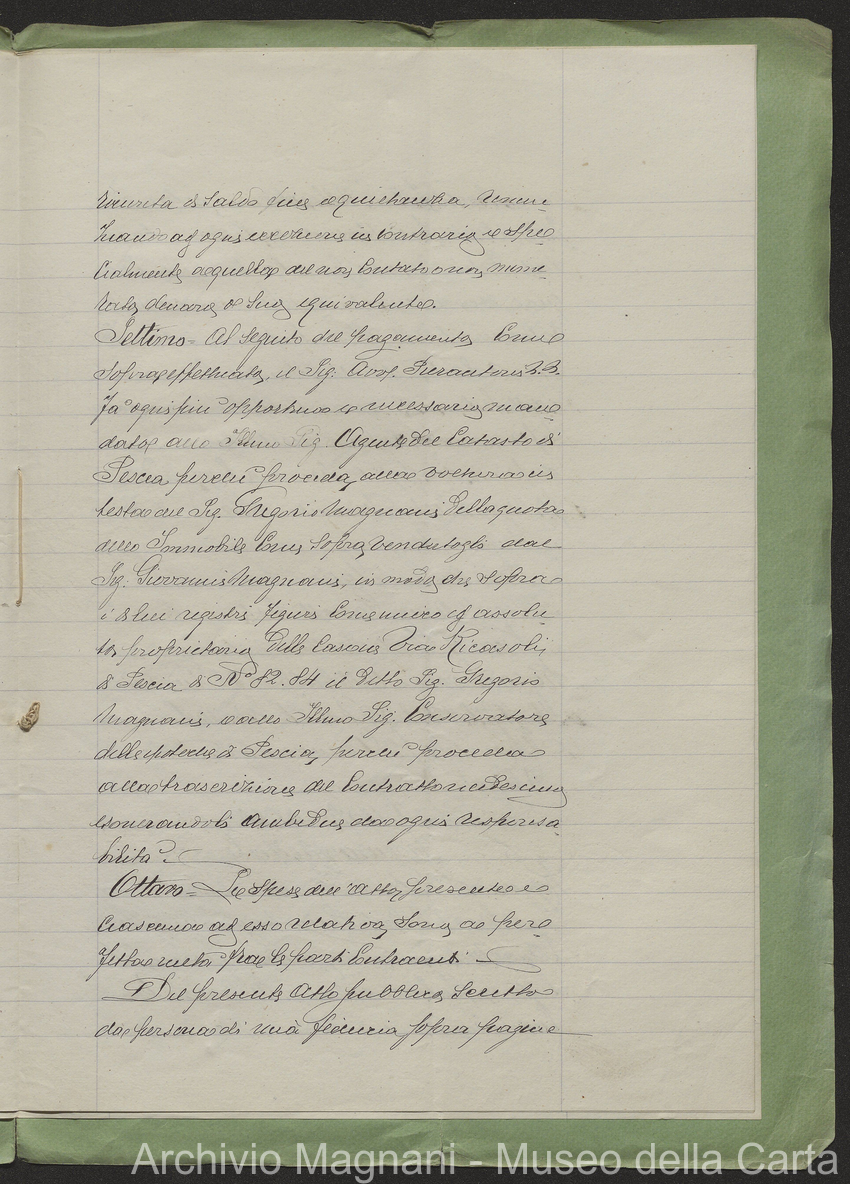 ricevuta di saldo fine e quietanza, renun-
ziando ad ogni eccezione in contrario e spe
cialmente a quella del non contato o non nume
rato denaro o suo equivalente.
Settimo = Al seguito del pagamento come
sopra effettuato, il Sig. Avv. Pierantoni
fa ogni più opportuno e necessario man
dato allo Illmo Sig. Agente del Catasto di
Pescia perché proceda alla voltura in
testa del Sig. Gregorio Magnani della quota
dello Immobile come sopra vendutogli dal
Sig. Giovanni Magnani, in modo che sopra
i di lui registri figuri come unico ed assolu
to proprietario delle Case in Via Ricasoli
di Pescia di Ni 82. 84 il detto Sig. Gregorio
Magnani, e allo Illmo Sig. Conservatore
delle ipoteche di Pescia, perché proceda
alla trascrizione del Contratto medesimo
esonerandoli ambedue da ogni responsa-
bilità.
Ottavo = Le spese dell'atto presente e
ciascuna ad esso relativa, sono a per
fetta metà fra le parti contraenti
Del presente Atto pubblico scritto
da persona di mia fiducia sopra pagine
Archivio Magnani - Museo della Carta